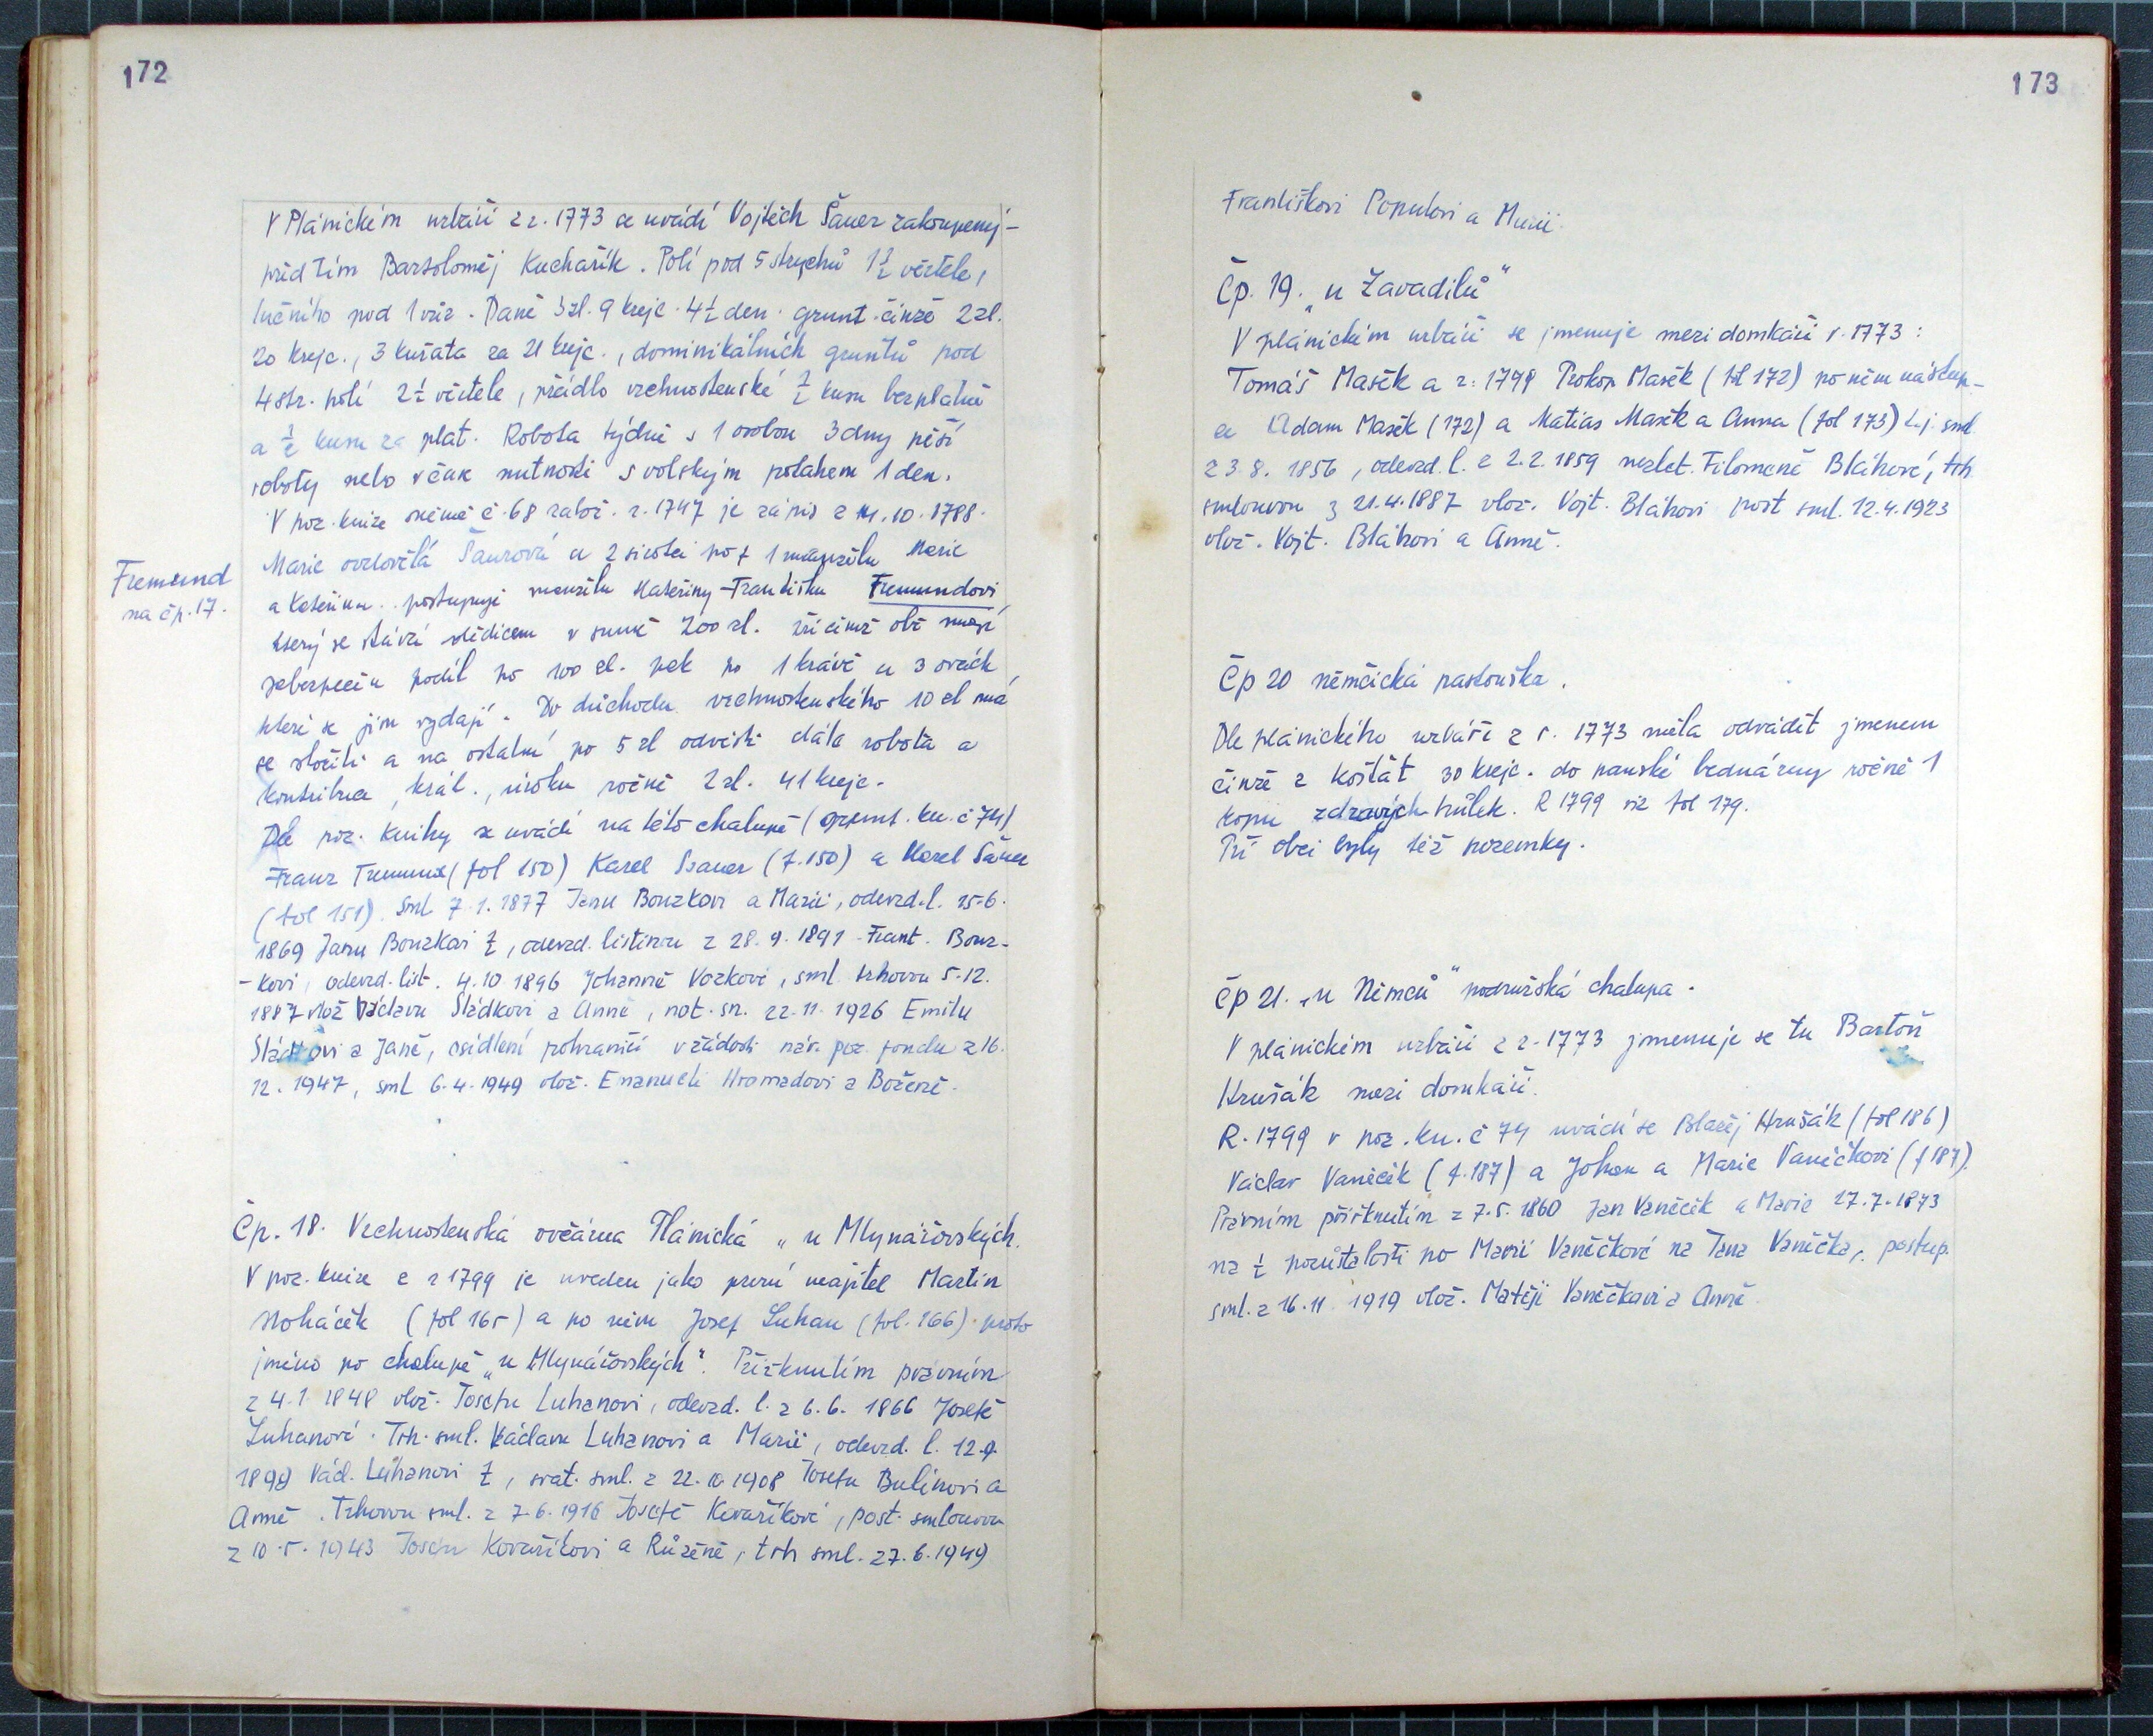 172
V Plánickém urbáři z r. 1773 se uvádí Vojtěch Šauer zakoupený-
před tím Bartoloměj Kuchařík. Polí pod 5 strychů 1 1/2 věrtele,
lučního pod 1 vůz. Daně 3 zl. 9 krejc. 4 1/2 den. grunt. činže 2 zl.
20 krejc., 3 kuřata za 21 krejc., dominikálních gruntů pod
4 str. polí 2 1/2 věrtele, předlo vrchnostenské 1/2 kusu bezplatně
a 1/2 kusu za plat. Robota týdně s 1 osobou 3 dny pěší
roboty nebo v čak nutnosti s volským potahem 1 den.
V poz. knize č. 68 založ. r. 1747 je zápis z 11. 10. 1788.
Marie ovdovělá Šaurová a 2 sirotci po † 1 manželu Marie
Fremund
na čp. 17.
a Kateřina postupují manželu Kateřiny Františku Fremundovi,
který se stává dědicem v sumě 200 zl. při čemž obě mají
zabezpečen podíl po 100 zl. pak po 1 krávě a 3 ovcích
které se jim vydají. Do důchodu vrchnostenského 10 zl má
se složiti a na ostatní po 5 zl odvésti dále robota a
kontribuce, král., úroku ročně 2 zl. 41 krejc.
Dle poz. knihy se uvádí na této chalupě (grunt. kn. č 74)
Franz Fremund (fol 150) Karel Szauer (f. 150) a Karel Šauer
(fol 151). Sml 7. 1. 1877 Janu Bouzkovi a Marii, odevzd. l. 15. 6.
1869 Janu Bouzkovi 1/2, odevzd. listinou z 28. 9. 1891 Frant. Bouz-
-kovi, odevzd. list. 4. 10 1896 Johanně Vozkové, sml. trhovou 5. 12.
1887 vlož Václavu Sládkovi a Anně, not. sn. 22. 11. 1926 Emilu
Sládkovi a Janě, osídlení pohraničí v žádosti nár. poz. fondu z 16.
12. 1947, sml 6. 4. 1949 vlož. Emanueli Hromadovi a Boženě.
Čp. 18. Vrchnostenská ovčárna Plánická „u Mlynářovských.
V poz. knize z r 1799 je uveden jako první majitel Martin
Noháček (fol 165) a po něm Josef Luhan (fol. 166) proto
jméno po chalupě „u Mlynářovských". Přiřknutím právním
z 4. 1 1848 vlož. Josefu Luhanovi, odevzd. l. z 6. 6. 1866 Josefě
Luhanové. Trh. sml. Václavu Luhanovi a Marii, odevzd. l. 12. 9.
1899 Václ. Luhanovi 1/2, svat. sml. z 22. 10. 1908 Josefu Bulínovi a
Anně. Trhovou sml. z 7. 6. 1916 Josefě Kovaříkové, post. smlouvou
z 10. 5. 1943 Josefu Kovaříkovi a Růženě, trh sml. 27. 6. 1949
173
Františkovi Populovi a Marii.
Čp. 19. „u Zavadilů"
V plánickém urbáři se jmenuje mezi domkáři r. 1773:
Tomáš Mašek a r. 1799 Prokop Mašek (fol 172) po něm nástup-
ce Adam Mašek (172) a Matias Mašek a Anna (fol 173) sml
z 3. 8. 1856, odevzd. l. z 2. 2. 1859 nezlet. Filomeně Bláhové, trh.
smlouvou z 21. 4. 1887 vlož. Vojt. Bláhovi post sml. 12. 4. 1923
vlož. Vojt. Bláhovi a Anně.
Čp 20 němčická pastouška.
Dle plánického urbáře z r. 1773 měla odvádět jmenem
činže z košťát 30 krejc. do panské bednárny ročně 1
kopu zdravých hůlek. R 1799 viz fol 179.
Při obci byly též pozemky.
Čp 21. „u Němců" podružská chalupa.
V plánickém urbáři z r. 1773 jmenuje se tu Bartoň
Hrušák mezi domkáři.
R. 1799 v poz. kn. č 74 uvádí se Blažej Hrušák (fol 186)
Václav Vaněček (f. 187) a Johan a Marie Vaněčkovi (f 187).
Právním přiřknutím z 7. 5. 1860 Jan Vaněček a Marie 17. 7. 1873
na 1/2 pozůstalosti po Marii Vaněčkové na Jana Vaněčka, postup.
sml. z 16. 11 1919 vlož. Matěji Vaněčkovi a Anně.